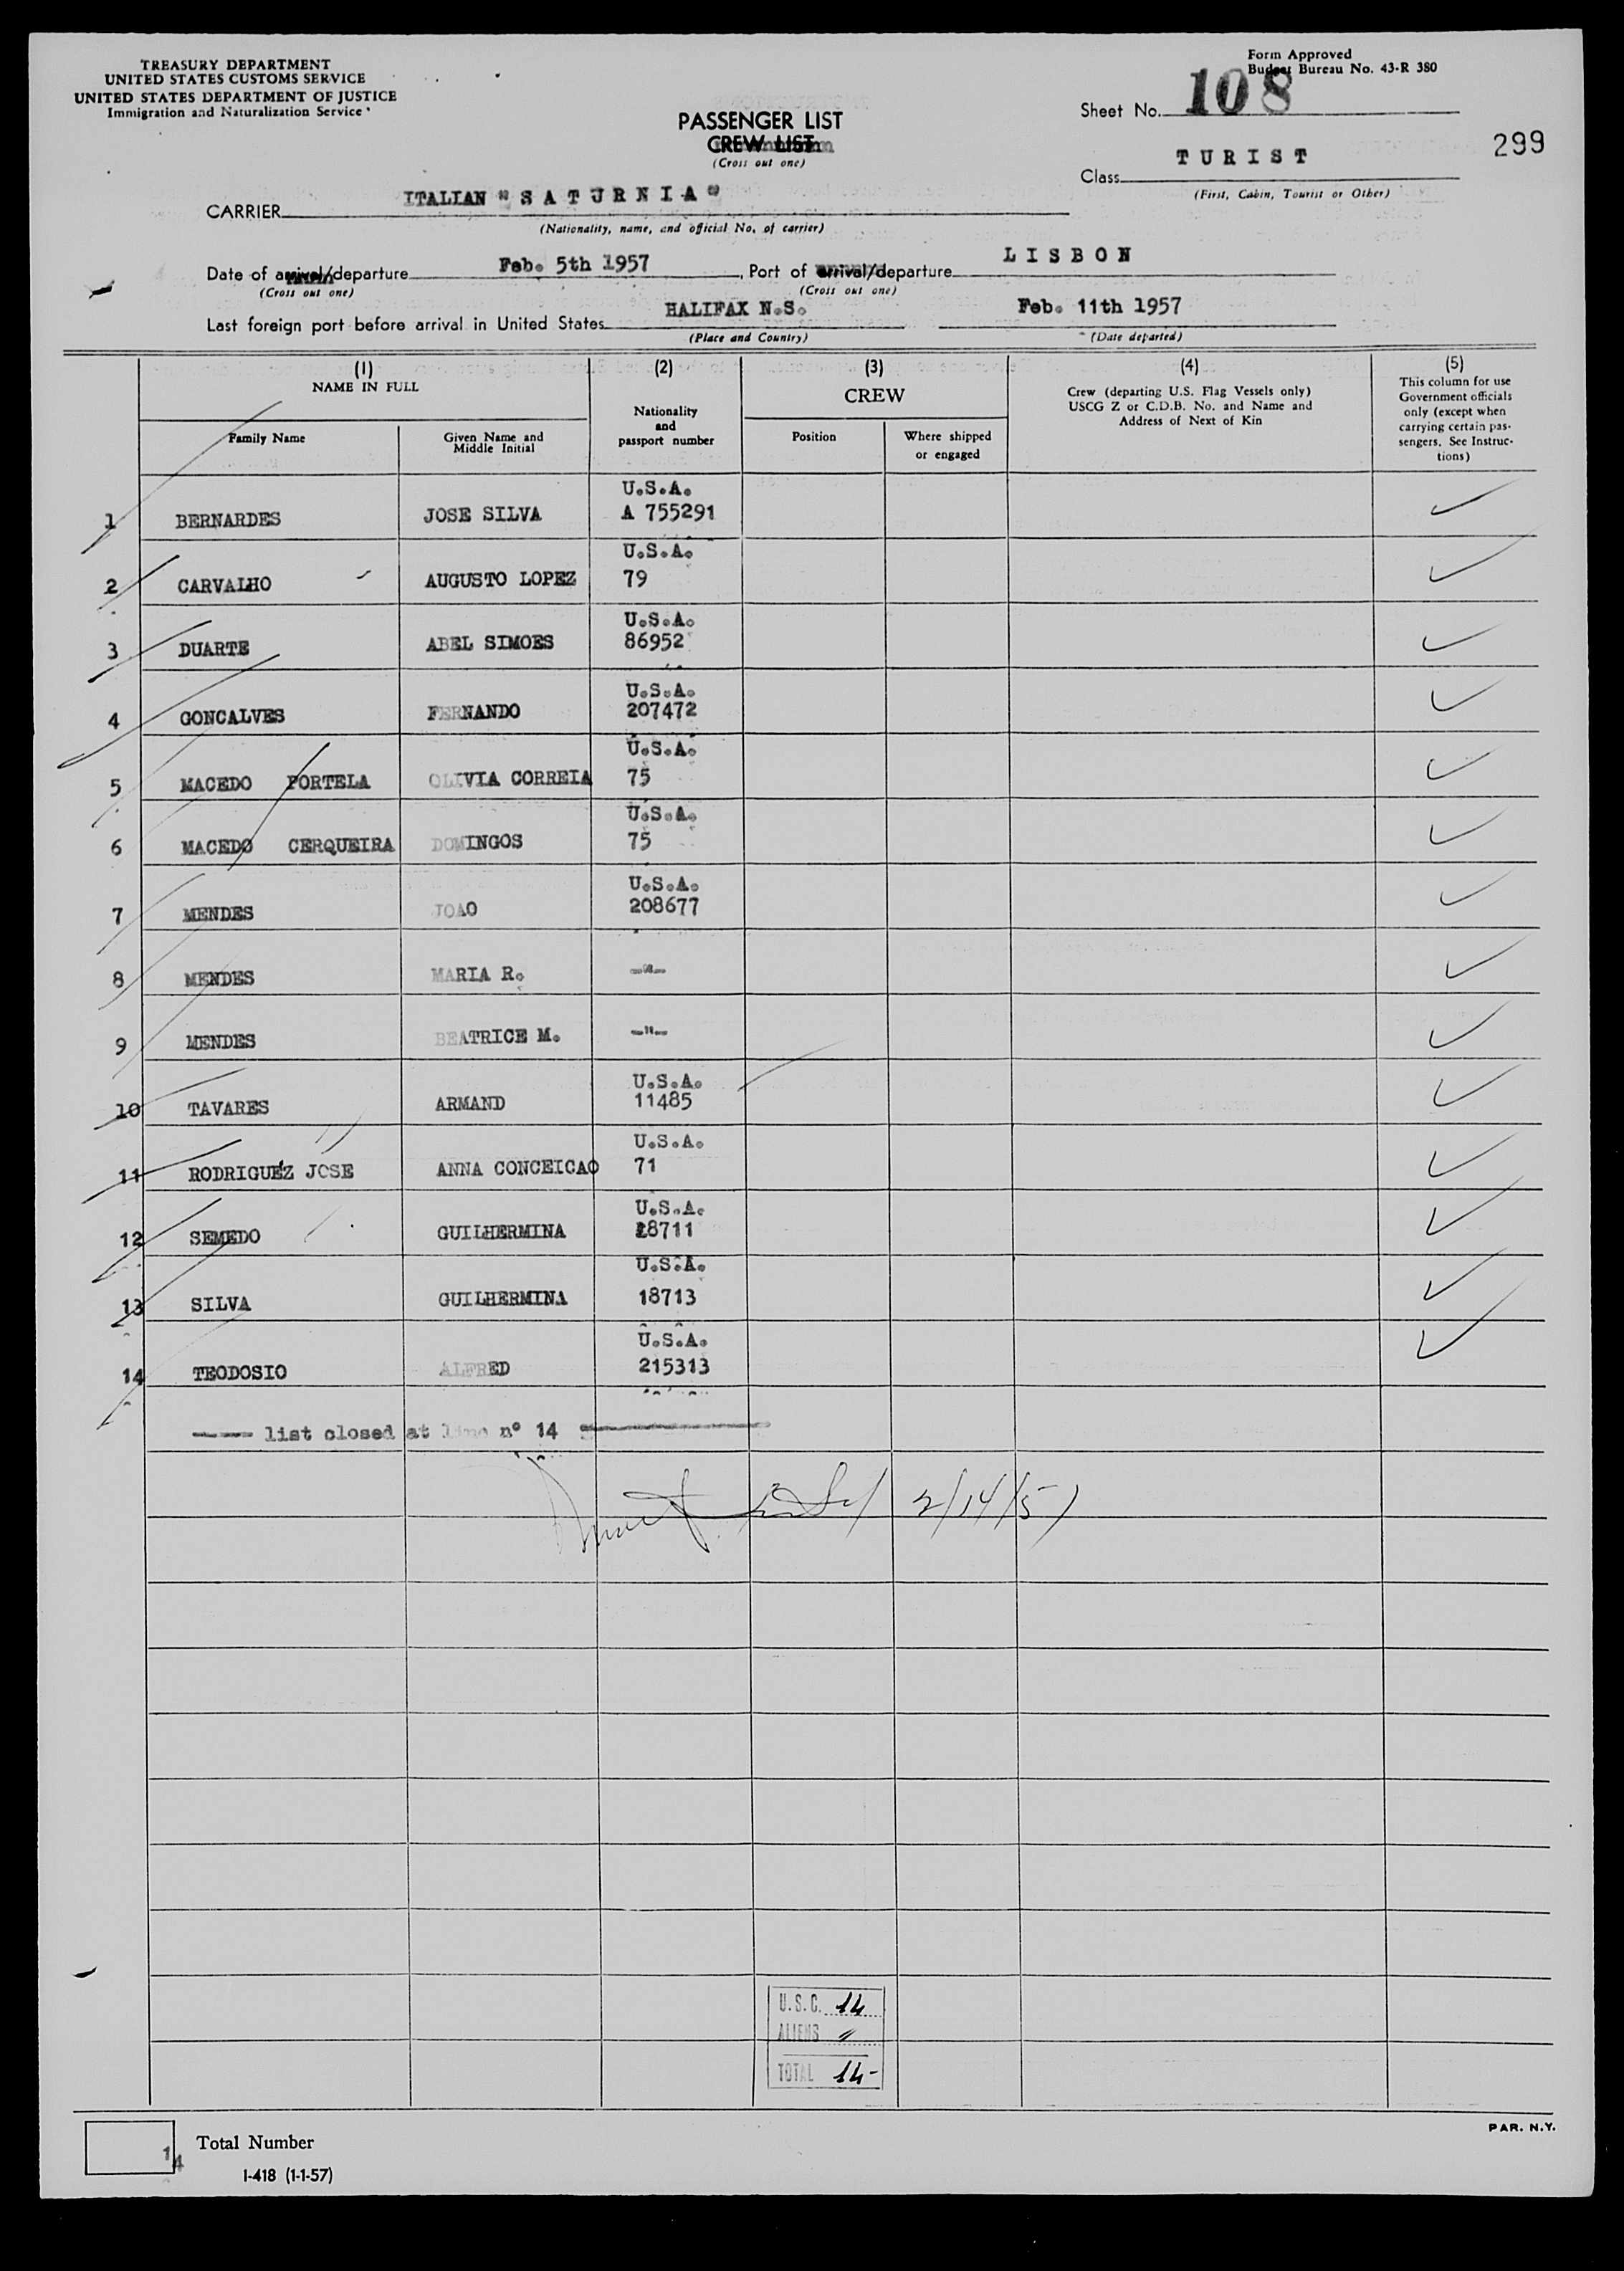 TREASURY DEPARTMENT
UNITED STATES CUSTOMS SERVICE
UNITED STATES DEPARTMENT OF JUSTICE
Immigration and Naturalization Service
Form Approved
Budget Bureau No. 43-R 380
Sheet No. 108
299
PASSENGER LIST
CREW LIST
(Cross out one)
Class TURIST
(First, Cabin, Tourist or Other)
CARRIER ITALIAN "SATURNIA"
(Nationality, name, and official No. of carrier)
Date of arrival/departure Feb. 5th 1957, Port of arrival/departure LISBON
(Cross out one) (Cross out one)
Last foreign port before arrival in United States HALIFAX N.S. Feb. 11th 1957
(Place and Country) (Date departed)
(1) (2) (3) (4) (5)
NAME IN FULL
Family Name
Given Name and Middle Initial
Nationality and passport number
CREW
Position
Where shipped or engaged
Crew (departing U.S. Flag Vessels only)
USCG Z or C.D.B. No. and Name and
Address of Next of Kin
This column for use
Government officials
only (except when
carrying certain pas-
sengers. See Instruc-
tions)
1 BERNARDES JOSE SILVA U.S.A. A 755291
2 CARVALHO AUGUSTO LOPEZ U.S.A. 79
3 DUARTE ABEL SIMOES U.S.A. 86952
4 GONCALVES FERNANDO U.S.A. 207472
5 MACEDO PORTELA OLIVIA CORREIA U.S.A. 75
6 MACEDO CERQUEIRA DOMINGOS U.S.A. 75
7 MENDES JOAO U.S.A. 208677
8 MENDES MARIA R. -"-
9 MENDES BEATRICE M. -"-
10 TAVARES ARMAND U.S.A. 11485
11 RODRIGUEZ JOSE ANNA CONCEICAO U.S.A. 71
12 SEMEDO GUILHERMINA U.S.A. 18711
13 SILVA GUILHERMINA U.S.A. 18713
14 TEODOSIO ALFRED U.S.A. 215313
--- list closed at line nº 14
2/14/57
U.S.C. 14
ALIENS "
TOTAL 14-
14 Total Number
I-418 (1-1-57)
PAR. N.Y.